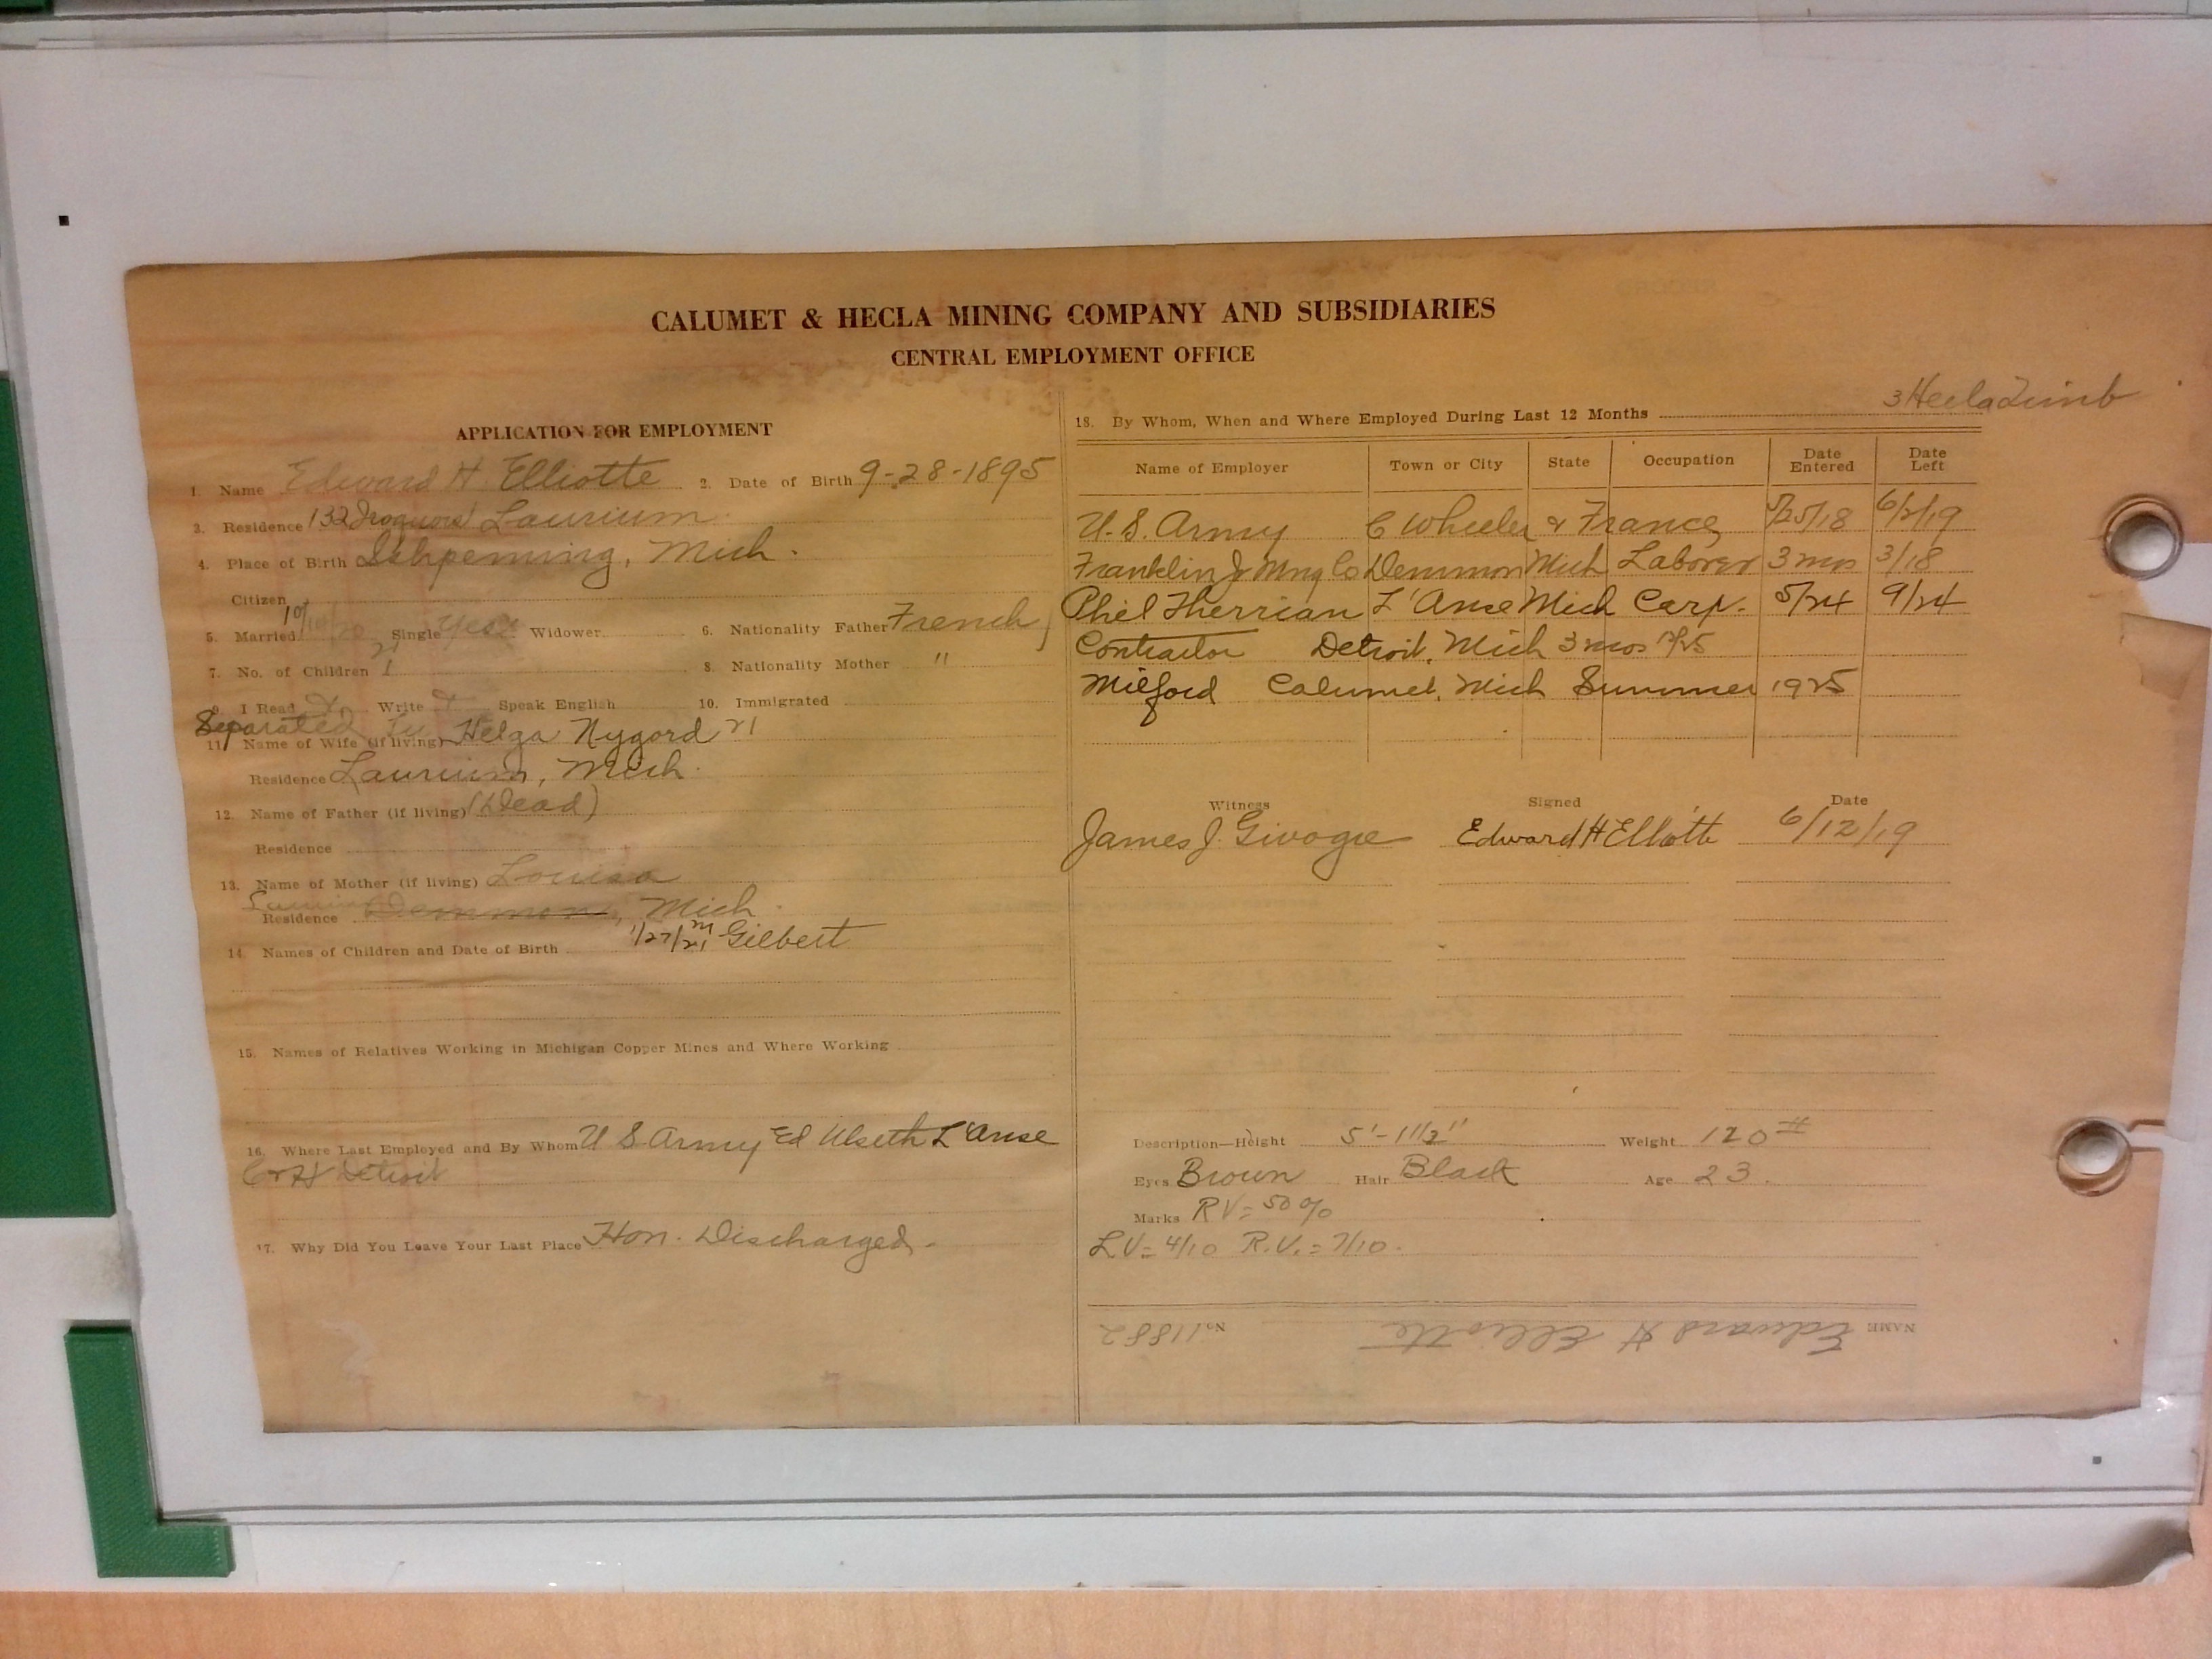 CALUMET & HECLA MINING COMPANY AND SUBSIDIARIES
CENTRAL EMPLOYMENT OFFICE
APPLICATION FOR EMPLOYMENT
1. Name Edward H. Elliotte 2. Date of Birth 9-28-1895
3. Residence 132 Iroquois Laurium
4. Place of Birth Ishpeming, Mich.
Citizen
5. Married Single yes Widower
6. Nationality Father French
7. No. of Children 1
8. Nationality Mother "
9. I Read Write Speak English 10. Immigrated
Separated
11. Name of Wife (if living) Helga Nygord 21
Residence Laurium, Mich.
12. Name of Father (if living) (Dead)
Residence
13. Name of Mother (if living) Louisa
Laurium
Residence Demmon, Mich.
14. Names of Children and Date of Birth 1/27/21 m Gilbert
15. Names of Relatives Working in Michigan Copper Mines and Where Working
16. Where Last Employed and By Whom U S Army Ed Ulseth L'Anse
C & H Detroit
17. Why Did You Leave Your Last Place Hon. Discharged.
3 Hecla Timb
18. By Whom, When and Where Employed During Last 12 Months
Name of Employer Town or City State Occupation Date Entered Date Left
U.S. Army C Wheeler & France 5/25/18 6/2/19
Franklin Jr Mng Co Demmon Mich Laborer 3 mos 3/18
Phel Therrian L'Anse Mich Carp. 5/24 9/24
Contractor Detroit, Mich 3 mos
Milford Calumet, Mich Summer 1925
Witness Signed Date
James J. Givogre Edward H Elliotte 6/12/19
Description—Height 5'-1 1/2" Weight 120#
Eyes Brown Hair Black Age 23.
Marks RV= 50%
L.V= 4/10 R.V.= 7/10.
NAME Edward H Elliotte No. 11882